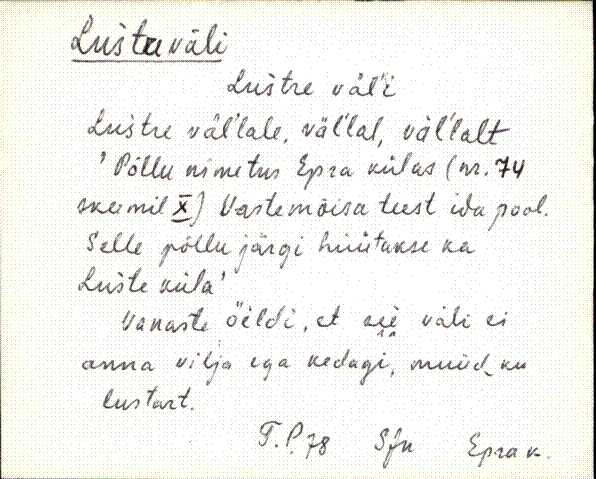 Lustuväli
Lustre väl'i
Lustre väl'lale, väl'lal, väl'lalt
'Põllu nimetus Epra külas (nr. 74
skeemil X) Vastemõisa teest ida pool.
Selle põllu järgi hüütakse ka
Luste küla'
Vanaste öeldi, et see väli ei
anna vilja ega kedagi, muud ku
lustart.
T.P.78 Sjn Epra k.